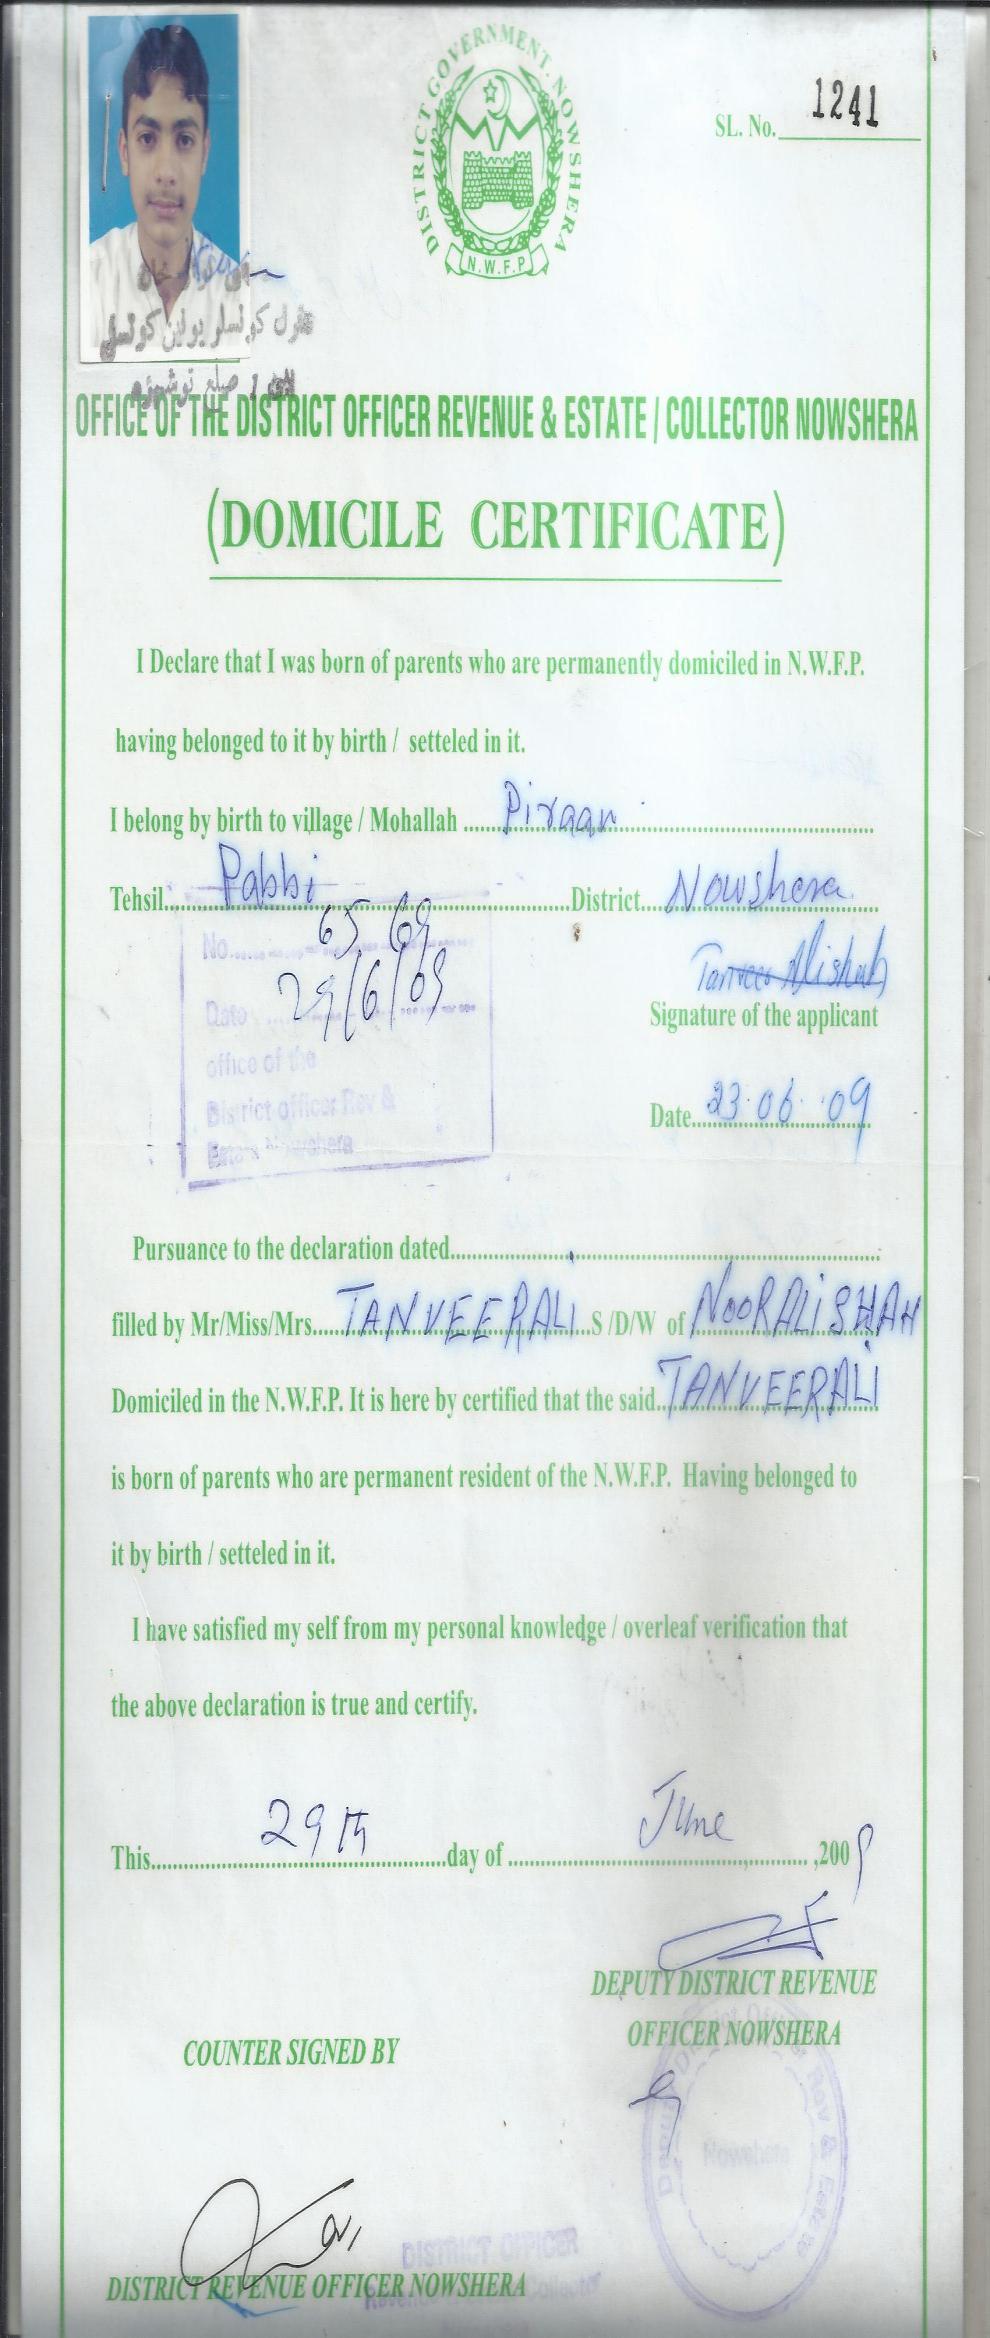 DISTRICT GOVERNMENT. NOWSHERA
N.W.F.P
SL. No. 1241
کونسلر یونین کونسل
ضلع نوشہرہ
OFFICE OF THE DISTRICT OFFICER REVENUE & ESTATE / COLLECTOR NOWSHERA
(DOMICILE CERTIFICATE)
I Declare that I was born of parents who are permanently domiciled in N.W.F.P.
having belonged to it by birth / setteled in it.
I belong by birth to village / Mohallah Piraan
Tehsil Pabbi District Nowshera
No. 65 69
Date 29/6/09
office of the
District officer Rev &
Estate Nowshera
Tanveer Alishah
Signature of the applicant
Date 23.06.09
Pursuance to the declaration dated
filled by Mr/Miss/Mrs. TANVEERALI S /D/W of NOORALISHAH
Domiciled in the N.W.F.P. It is here by certified that the said TANVEERALI
is born of parents who are permanent resident of the N.W.F.P. Having belonged to
it by birth / setteled in it.
I have satisfied my self from my personal knowledge / overleaf verification that
the above declaration is true and certify.
This 29th day of June ,2009
DEPUTY DISTRICT REVENUE
OFFICER NOWSHERA
Deputy District Officer Rev & Estate
Nowshera
COUNTER SIGNED BY
DISTRICT OFFICER
DISTRICT REVENUE OFFICER NOWSHERA
Revenue Collector